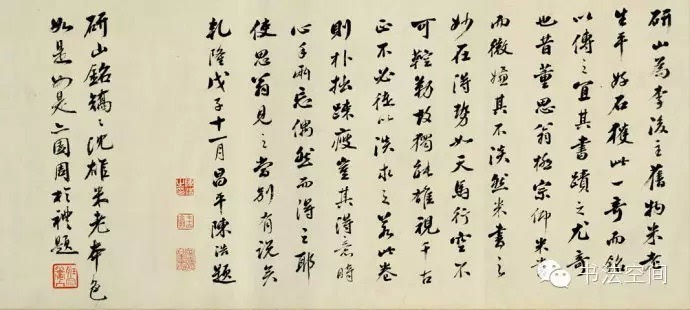 研山為李後主舊物米老
生平好石獲此一奇而銘
以傳之宜其書蹟之尤奇
也昔董思翁極宗仰米書
而微嫌其不淡然米書之
妙在得勢如天馬行空不
可鞚勒故獨能雄視千古
正不必徒以淡求之若此卷
則朴拙疎瘦豈其得意時
心手兩忘偶然而得之耶
使思翁見之當別有說矣
乾隆戊子十一月昌平陳浩題
研山銘鐫之沈雄米老本色
如是如是二園周於禮題
书法空间